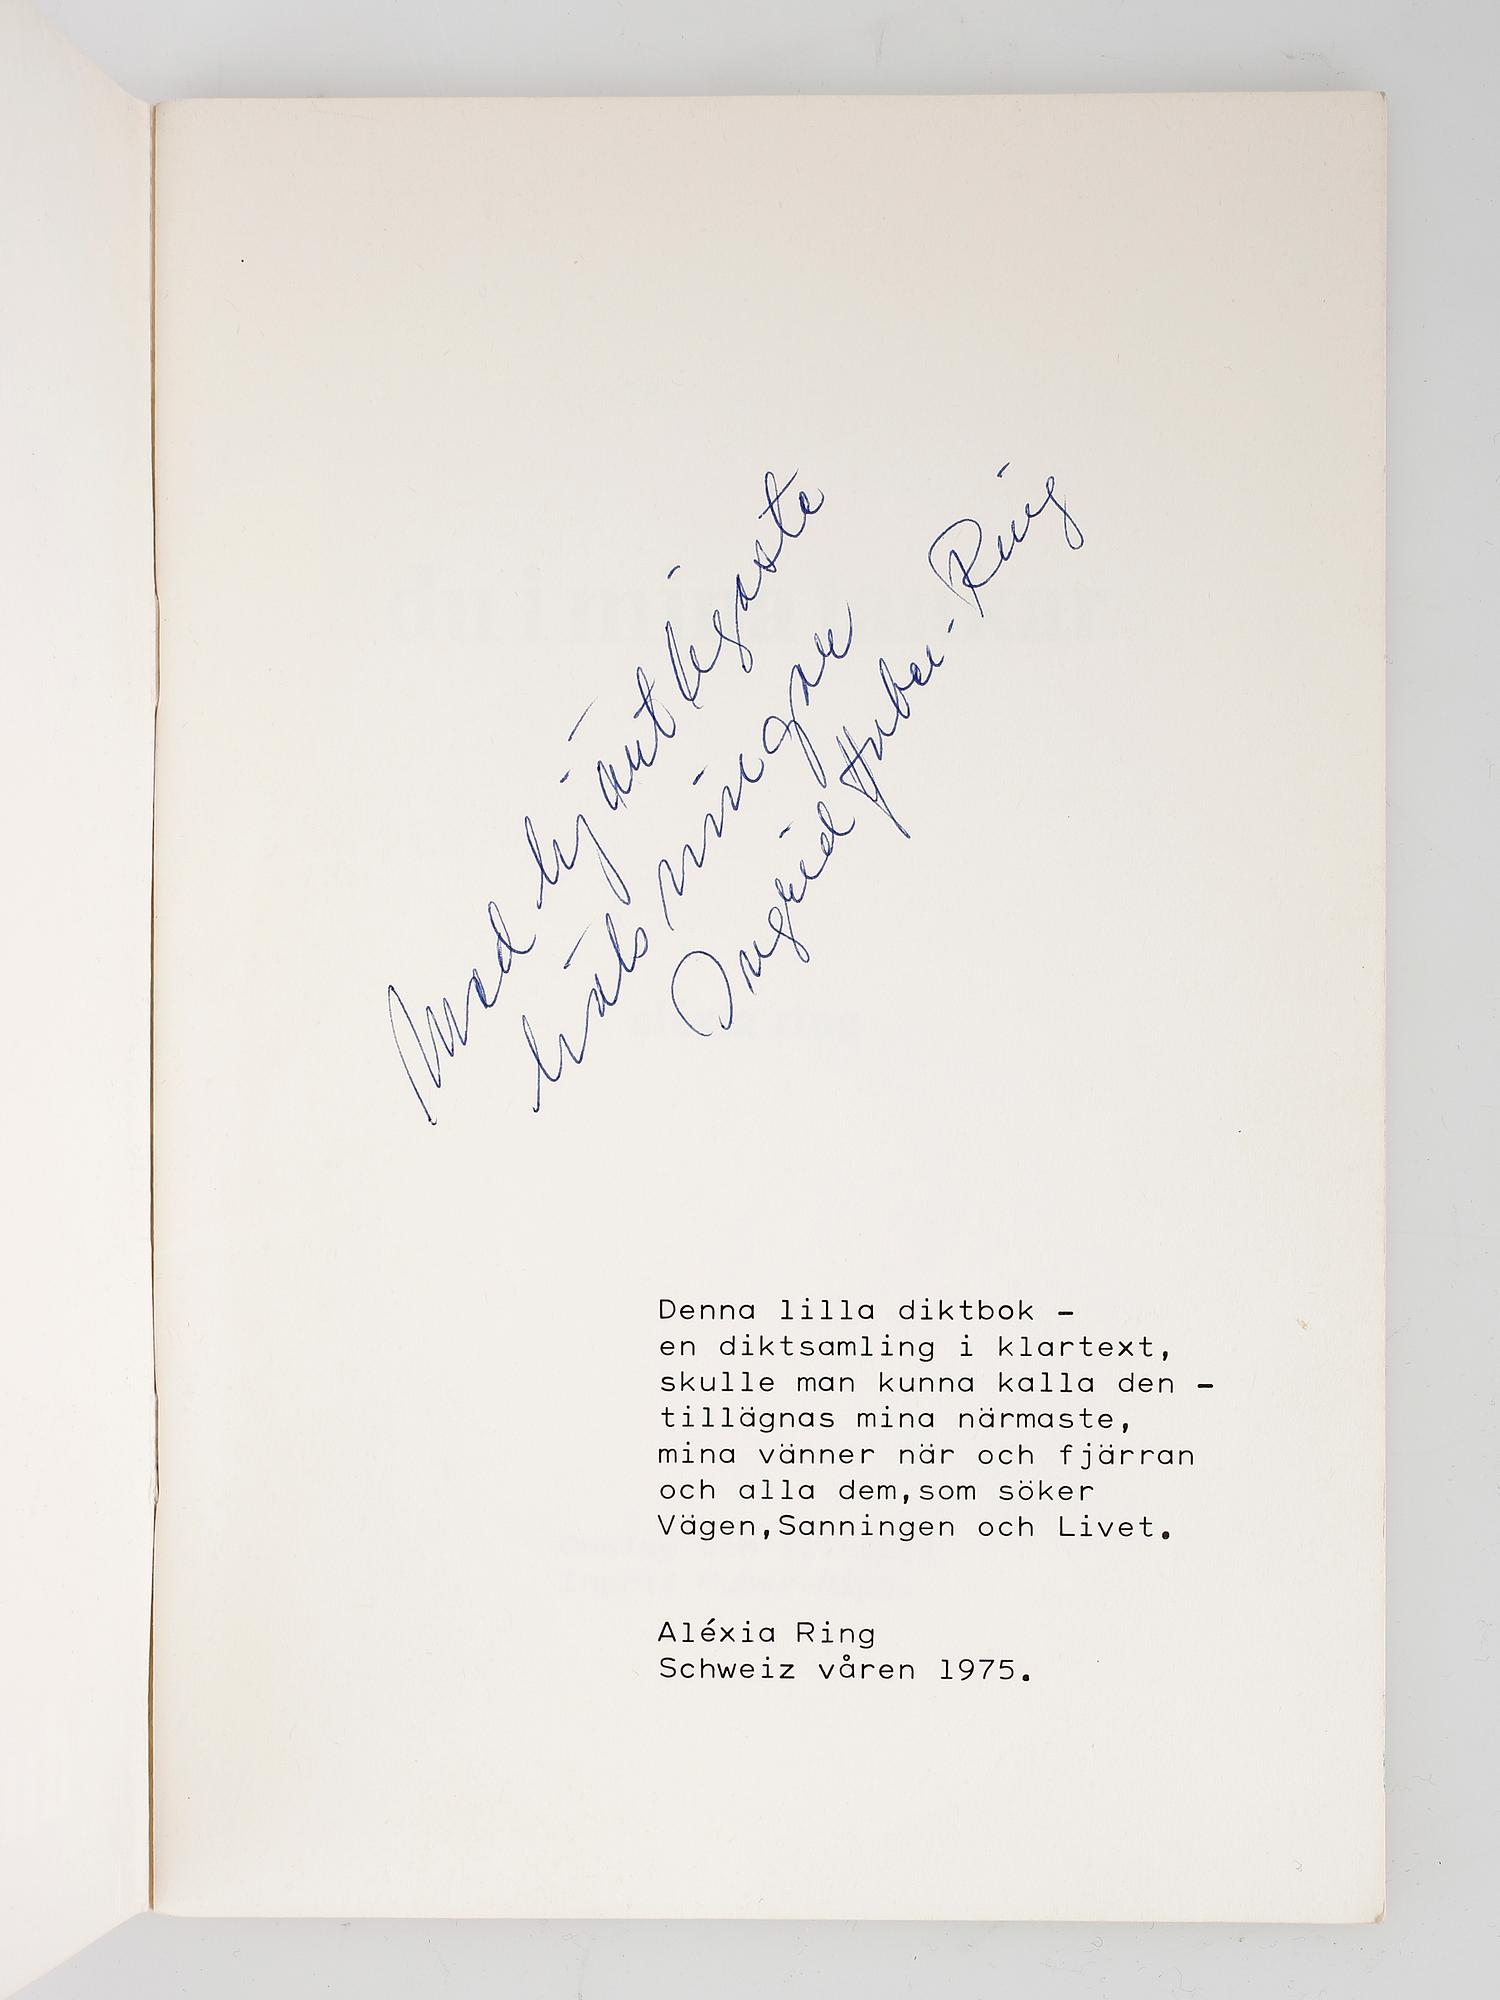 Med hjärtligaste
hälsningar
Ingrid Huber-Ring
Denna lilla diktbok -
en diktsamling i klartext,
skulle man kunna kalla den -
tillägnas mina närmaste,
mina vänner när och fjärran
och alla dem,som söker
Vägen,Sanningen och Livet.
Aléxia Ring
Schweiz våren 1975.